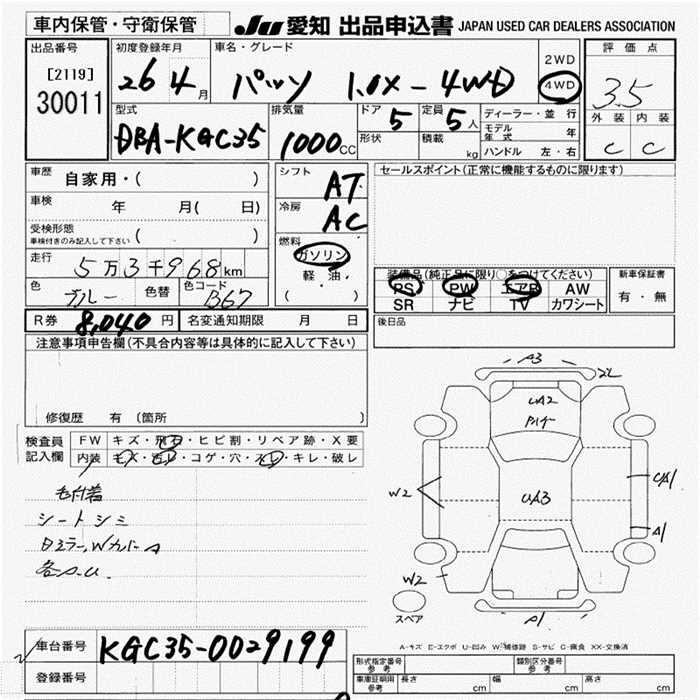 車内保管・守衛保管
JU 愛知 出品申込書 JAPAN USED CAR DEALERS ASSOCIATION
出品番号 初度登録年月 車名・グレード 評価点
[2119] 26 4月 パッソ 1.0X-4WD 2WD
30011 4WD 3.5
型式 排気量 ドア 定員 ディーラー・並行 外装 内装
DBA-KGC35 1000CC 5 5人 モデル年式 年 C C
形状 積載 kg ハンドル 左・右
車歴 自家用・( ) シフト AT セールスポイント(正常に機能するものに限ります)
車検 年 月( 日) 冷房 AC
受検形態
車検付きのみ記入して下さい ( ) 燃料
走行 5万3千968km ガソリン 装備品(純正品に限り○をつけてください) 新車保証書
色 ブルー 色替 色コード B67 軽・油 PS PW エアB AW 有・無
( ) SR ナビ TV カワシート
R券 8,040円 名変通知期限 月 日 後日品
注意事項申告欄(不具合内容等は具体的に記入して下さい)
修復歴 有 (箇所 )
検査員 FW キズ・飛石・ヒビ割・リペア跡・X要
記入欄 内装 キズ・汚レ・コゲ・穴・スレ・キレ・破レ
毛付着
シートシミ
各A.U
A3
2L
UA2
UA3
W2
UA1
A1
W2
スペア
A1
A-キズ E-エクボ U-凹み W-補修跡 S-サビ C-腐食 XX-交換済
車台番号 KGC35-0029199
登録番号
形式指定番号 参考 類別区分番号 参考
車庫証明用 参考 長さ cm 幅 cm 高さ cm